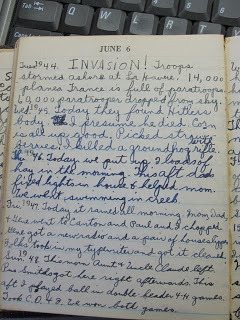 JUNE 6
Tues 1944. INVASION! Troops
stormed ashore at Le Havre. 14,000
planes France is full of paratroops.
dropped from sky.
1945 Today they found Hitlers
body. I presume he died. Corn
is all up good. Picked straw
berries. I killed a groundhog
46 Today we put up 1 load of
hay in the morning. This aft dad
fixed lights in house & I helped mom.
We went swimming in creek.
Fri. 1947. Today it rained all morning. Mom, Dad,
& went to Canton and Paul and I chopped
got a new radio and a pair of
took in my typewriter and got it cleaned.
Sun. 48. This morn Aunt & Uncle Claude left.
Smiths got here right afterwards. This
aft I played ball - double header 4-H games.
Took C.D. 4-8, we won both games.